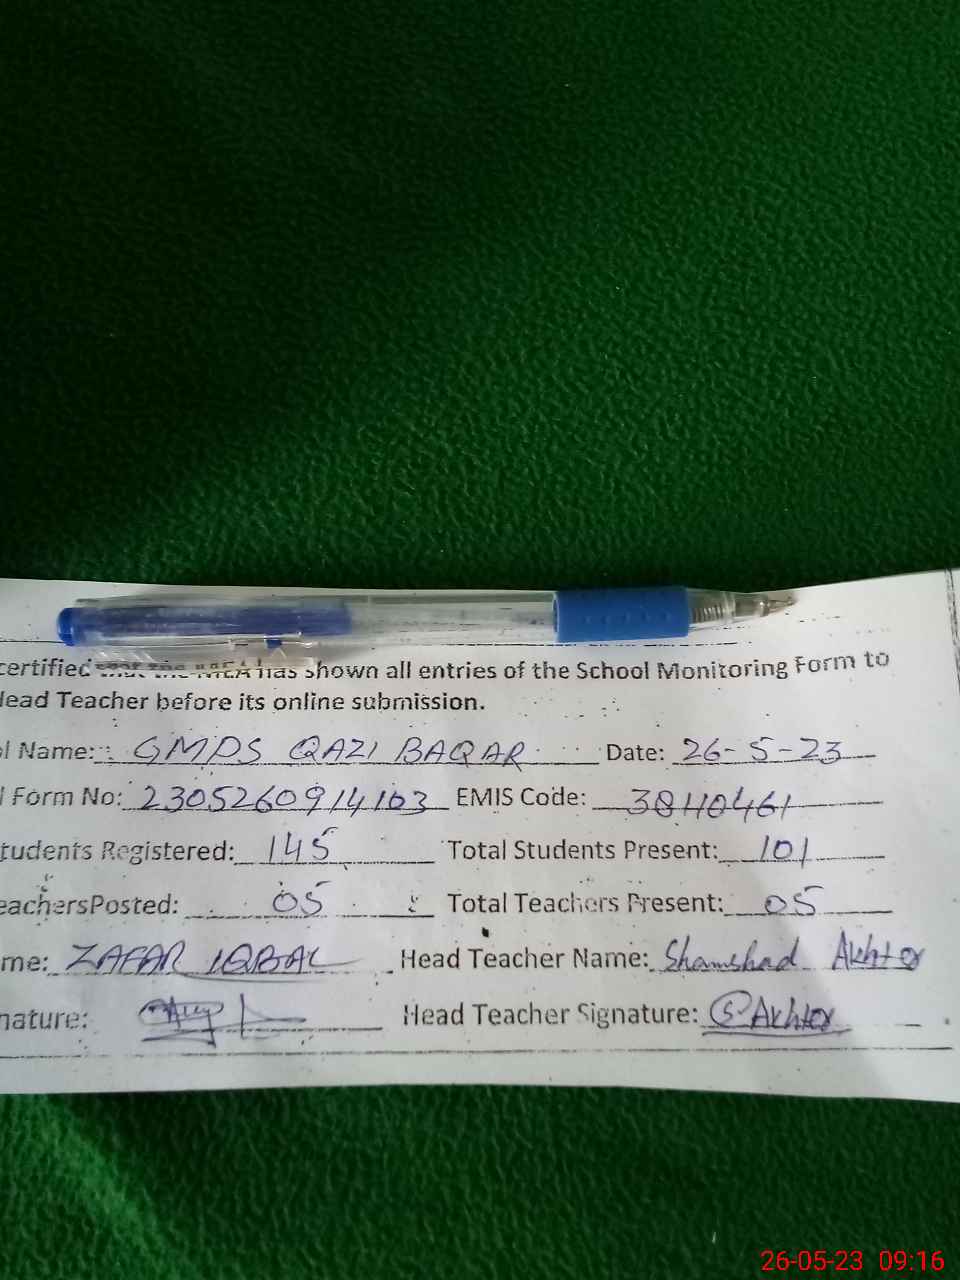 certified that the MEA has shown all entries of the School Monitoring Form to
Head Teacher before its online submission.
l Name: GMPS QAZI BAQAR Date: 26-5-23
l Form No: 2305260914103 EMIS Code: 38110461
tudents Registered: 145 Total Students Present: 101
eachersPosted: 05 Total Teachers Present: 05
me: ZAFAR IQBAL Head Teacher Name: Shamshad Akhter
nature: Head Teacher Signature: S Akhter
26-05-23 09:16